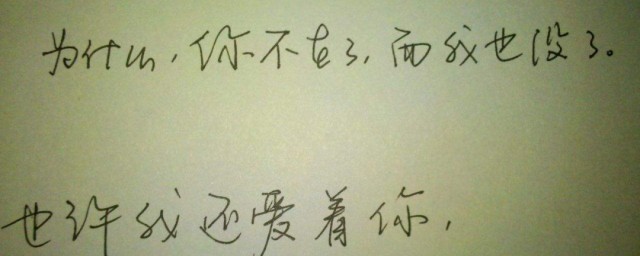 为什么，你不在了，而我也没了。
也许我还爱着你，